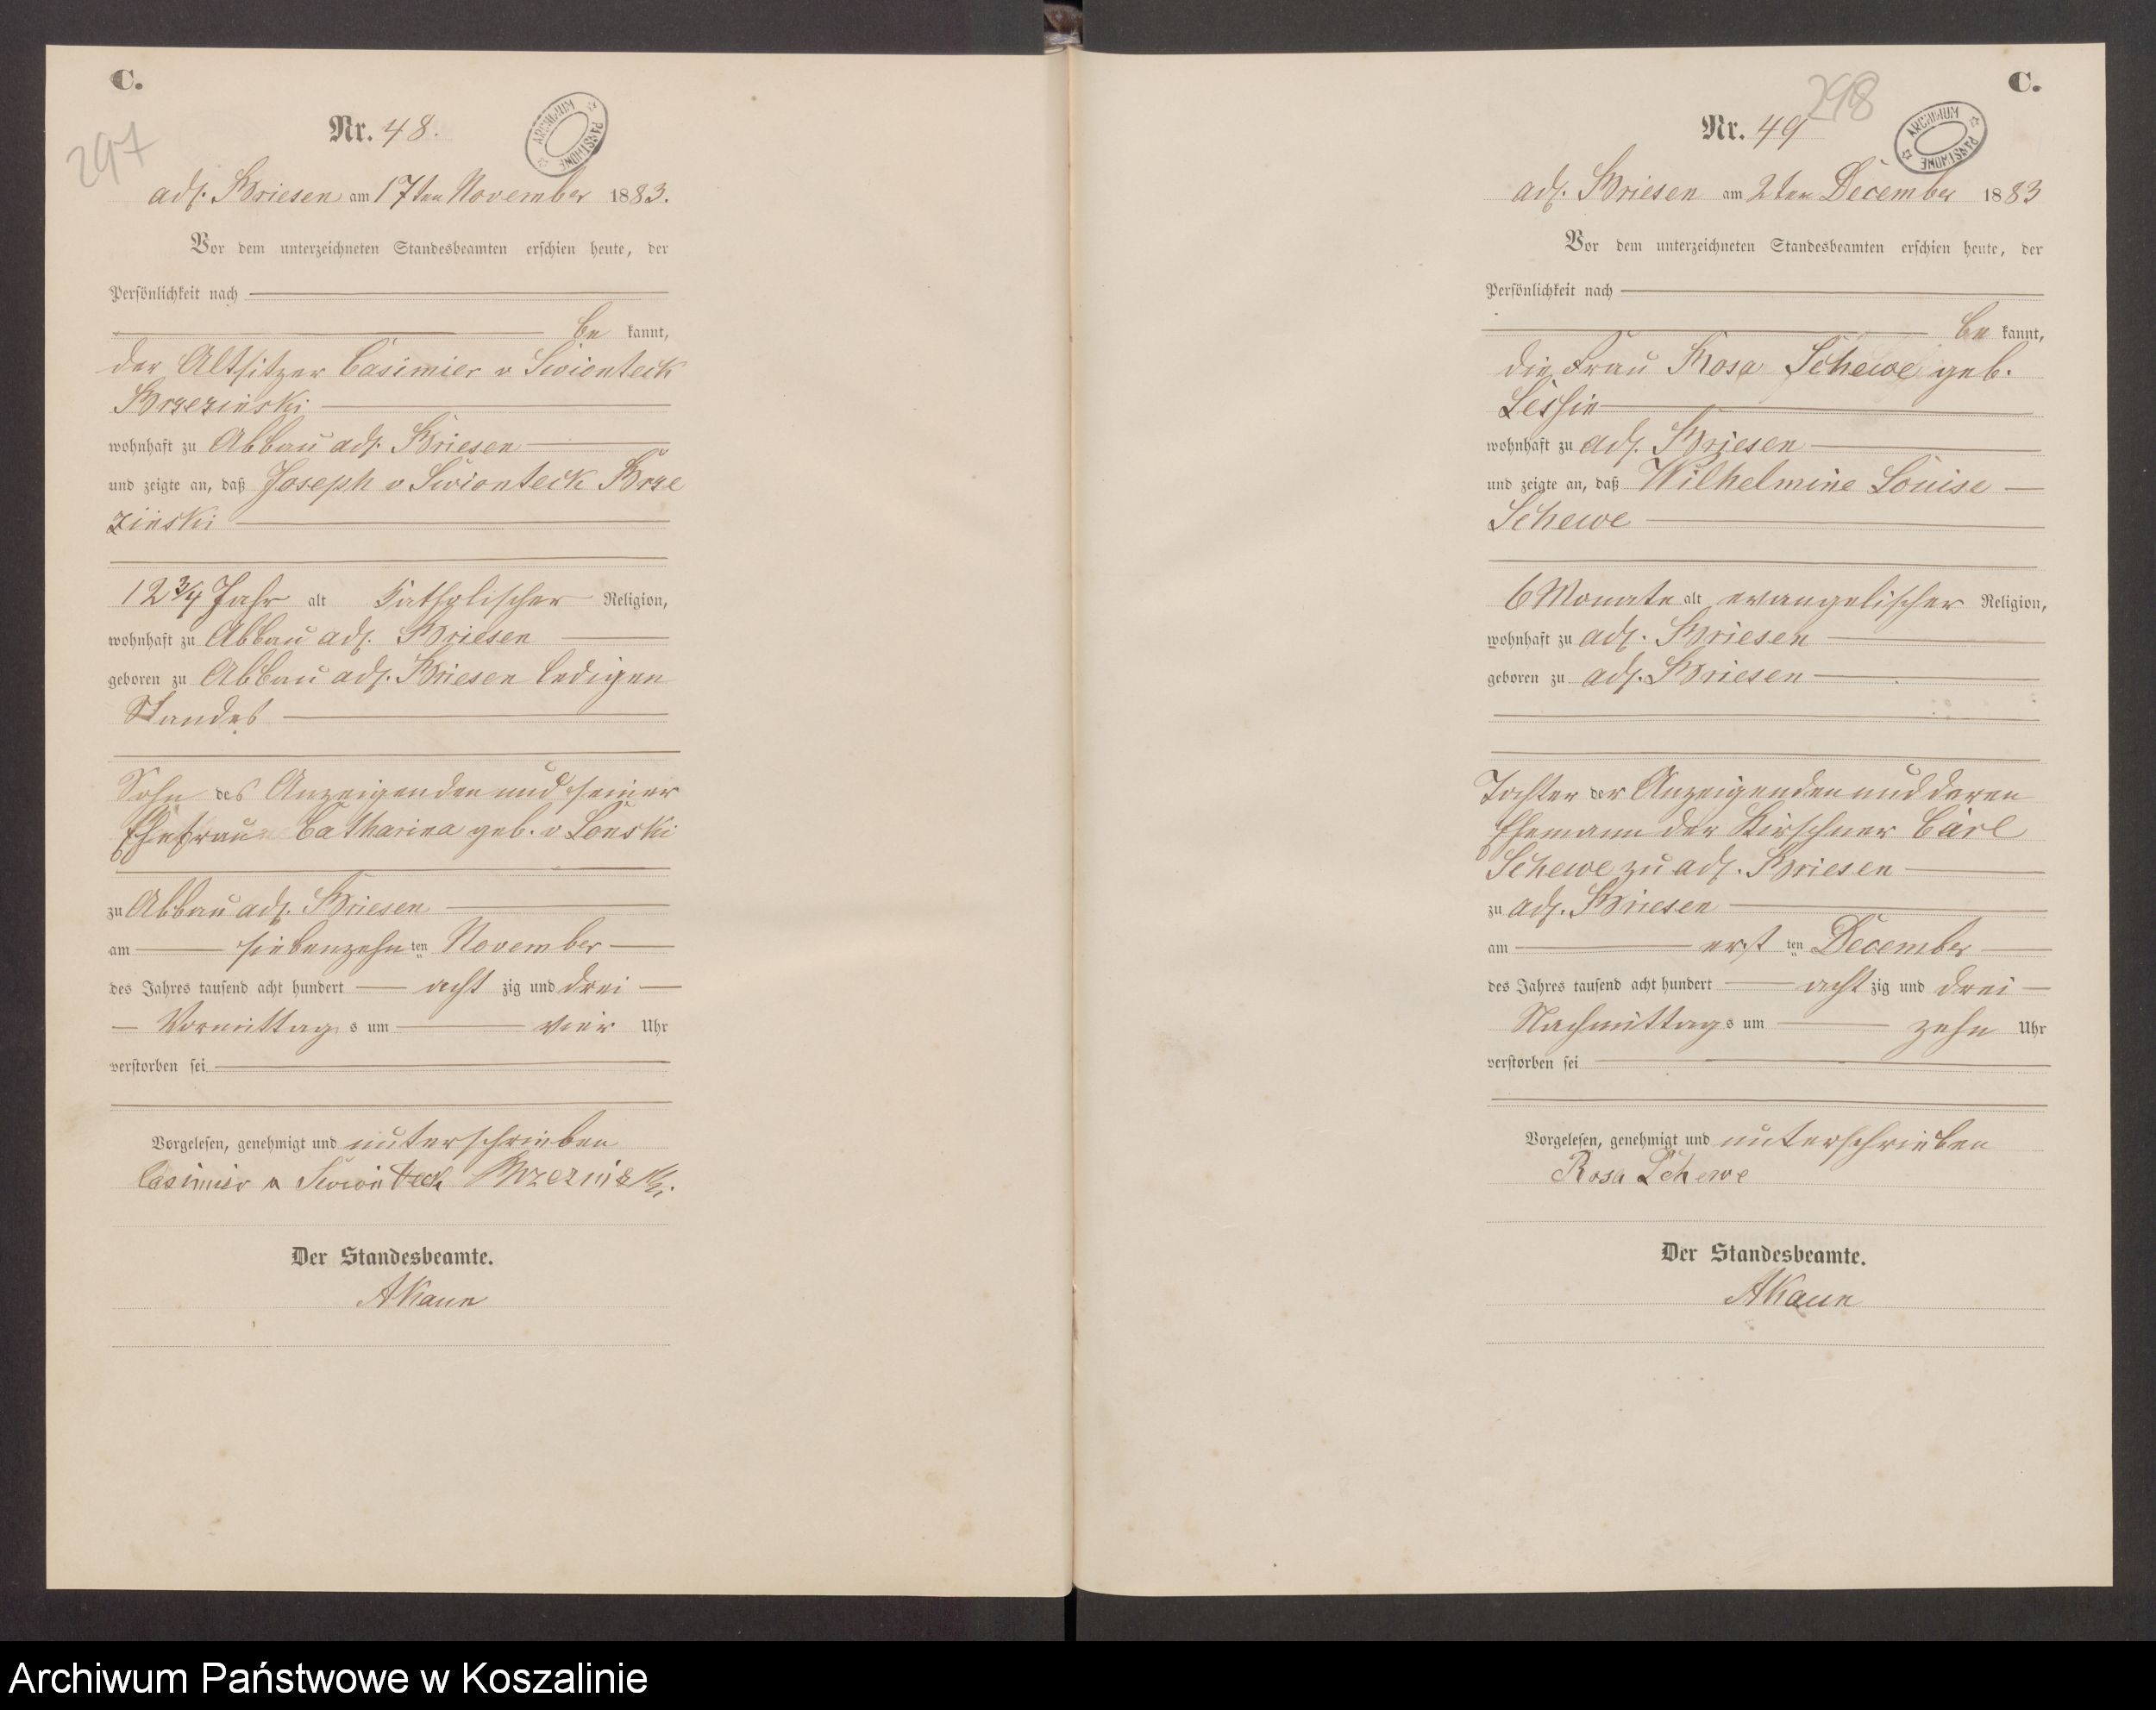 C.
297
Nr. 48.
ARCHIWUM PAŃSTWOWE
adl. Briesen am 17ten November 1883.
Vor dem unterzeichneten Standesbeamten erschien heute, der
Persönlichkeit nach
be kannt,
der Altsitzer Casimier v Swionteck
Brzezinski
wohnhaft zu Abbau adl. Briesen
und zeigte an, daß Joseph v Swionteck Brze
zinski
12 3/4 Jahr alt katholischer Religion,
wohnhaft zu Abbau adl. Briesen
geboren zu Abbau adl. Briesen ledigen
Standes
Sohn des Anzeigenden und seiner
Ehefrau Catharina geb. v Lonski
zu Abbau adl. Briesen
am siebenzehn ten November
des Jahres tausend acht hundert acht zig und drei
Vormittag s um vier Uhr
verstorben sei
Vorgelesen, genehmigt und unterschrieben
Casimier v Swionteck Brzezinski.
Der Standesbeamte.
AKaun
C.
298
Nr. 49
ARCHIWUM PAŃSTWOWE
adl. Briesen am 2ten December 1883
Vor dem unterzeichneten Standesbeamten erschien heute, der
Persönlichkeit nach
be kannt,
die Frau Rosa Schewe geb.
wohnhaft zu adl. Briesen
und zeigte an, daß Wilhelmine Louise
Schewe
6 Monate alt evangelischer Religion,
wohnhaft zu adl. Briesen
geboren zu adl. Briesen
Tochter der Anzeigenden und deren
Ehemann der Kirschner Carl
Schewe zu adl. Briesen
zu adl. Briesen
am erst ten December
des Jahres tausend acht hundert acht zig und drei
Nachmittag s um zehn Uhr
verstorben sei
Vorgelesen, genehmigt und unterschrieben
Rosa Schewe
Der Standesbeamte.
AKaun
Archiwum Państwowe w Koszalinie